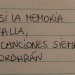 SI LA MEMORIA
FALLA,
CANCIONES SIEMP
ORDARÁN